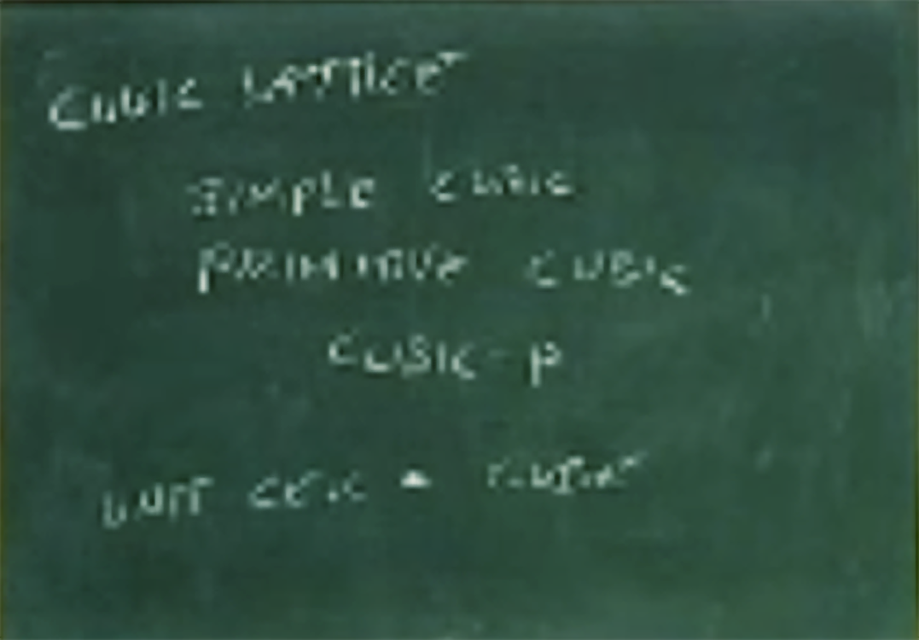 CUBIC LATTICE
SIMPLE CUBIC
PRIMITIVE CUBIC
CUBIC - P
UNIT CELL =